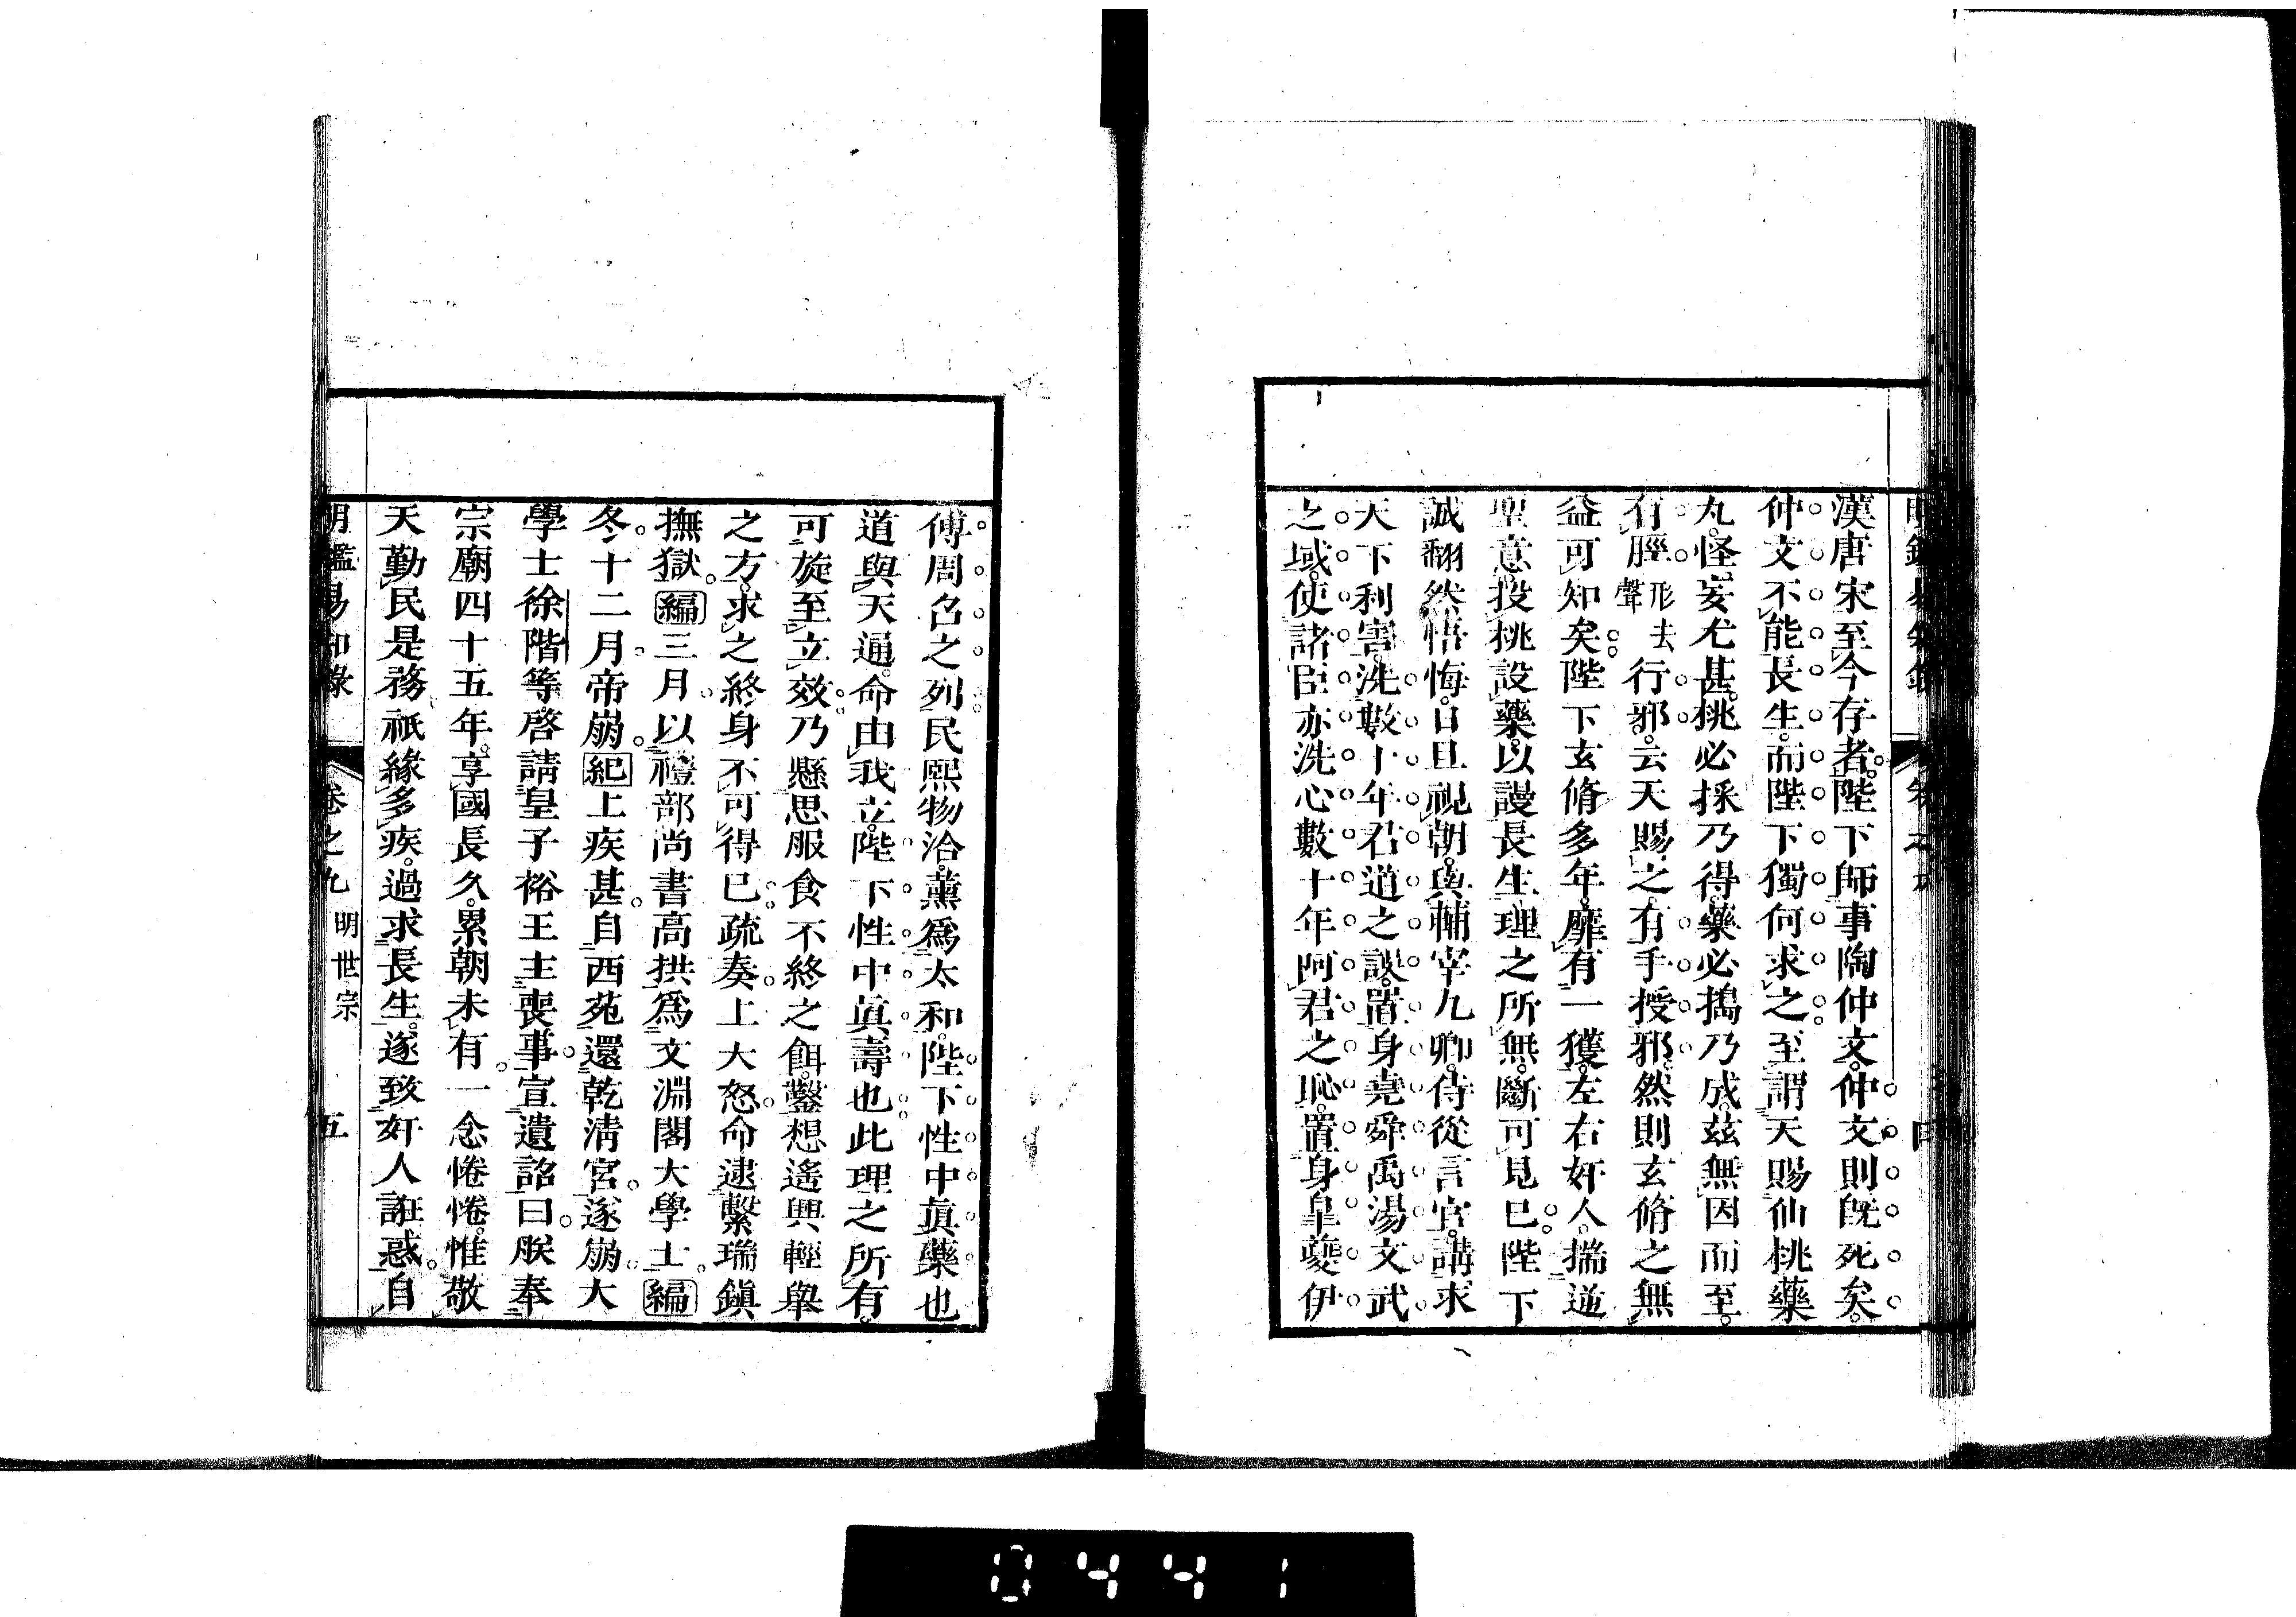 漢唐宋至今存者。陛下師事陶仲文。仲文則旣死矣。
仲文不能長生。而陛下獨何求之。至謂天賜仙桃藥
丸。怪妄尤甚。桃必採乃得。藥必搗乃成。茲無因而至。
有脛形去聲行邪。云天賜之。有手授邪。然則玄脩之無
益可知矣。陛下玄脩多年。靡有一獲。左右奸人。揣逆
聖意。投桃設藥。以謾長生。理之所無。斷可見巳。陛下
誠翻然悟悔。日旦視朝。與輔宰九卿。侍從言官。講求
天下利害。洗數十年君道之誤。置身堯舜禹湯文武
之域。使諸臣亦洗心數十年阿君之恥。置身皐夔伊
傅周召之列。民熙物洽。薰爲太和。陛下性中眞藥也
道與天通。命由我立。陛下性中眞壽也。此理之所有。
可旋至立效。乃懸思服食不終之餌。鑿想遙興輕舉
之方。求之終身不可得巳。疏奏。上大怒。命逮繫瑞鎭
撫獄。編三月。以禮部尚書高拱爲文淵閣大學士。編
冬。十二月。帝崩。紀上疾甚。自西苑還乾淸宮。遂崩。大
學士徐階等。啓請皇子裕王主喪事。宣遺詔曰。朕奉
宗廟四十五年。享國長久。累朝未有。一念惓惓。惟敬
天勤民是務。祇緣多疾。過求長生。遂致奸人誑惑。自
明鑑易知錄 卷之九 明世宗 五